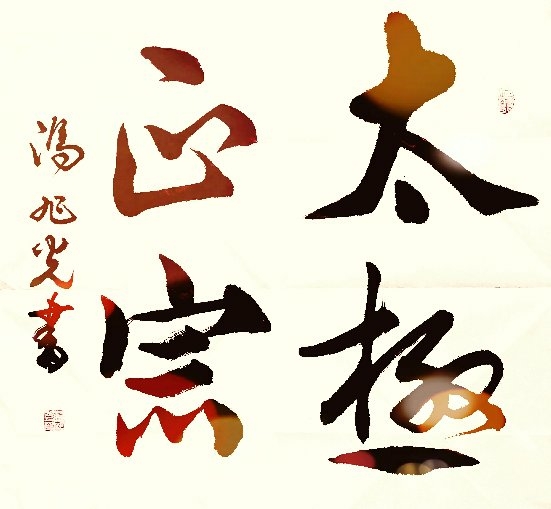 太極
正宗
馮旭光書